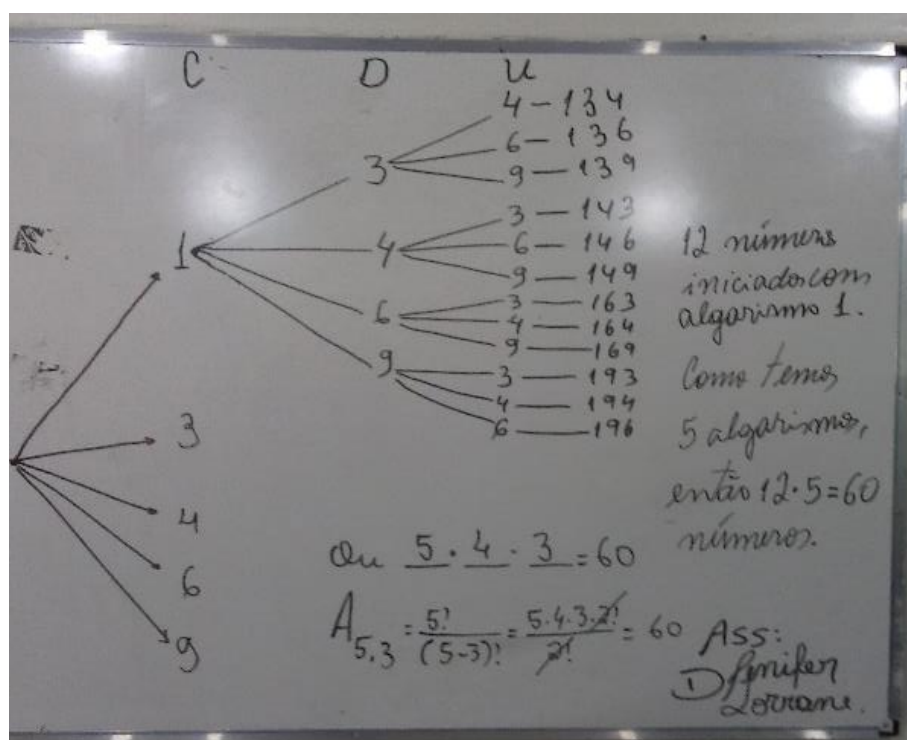 C D U
1
3
4 – 134
6 – 136
9 – 139
4
3 – 143
6 – 146
9 – 149
6
3 – 163
4 – 164
9 – 169
9
3 – 193
4 – 194
6 – 196
3
4
6
9
12 números
iniciados com
algarismo 1.
Como temos
5 algarismos,
então 12·5=60
números.
Ou 5 · 4 · 3 = 60
A5,3 = 5!/(5-3)! = 5.4.3.2!/2! = 60
Ass:
Lorrane.